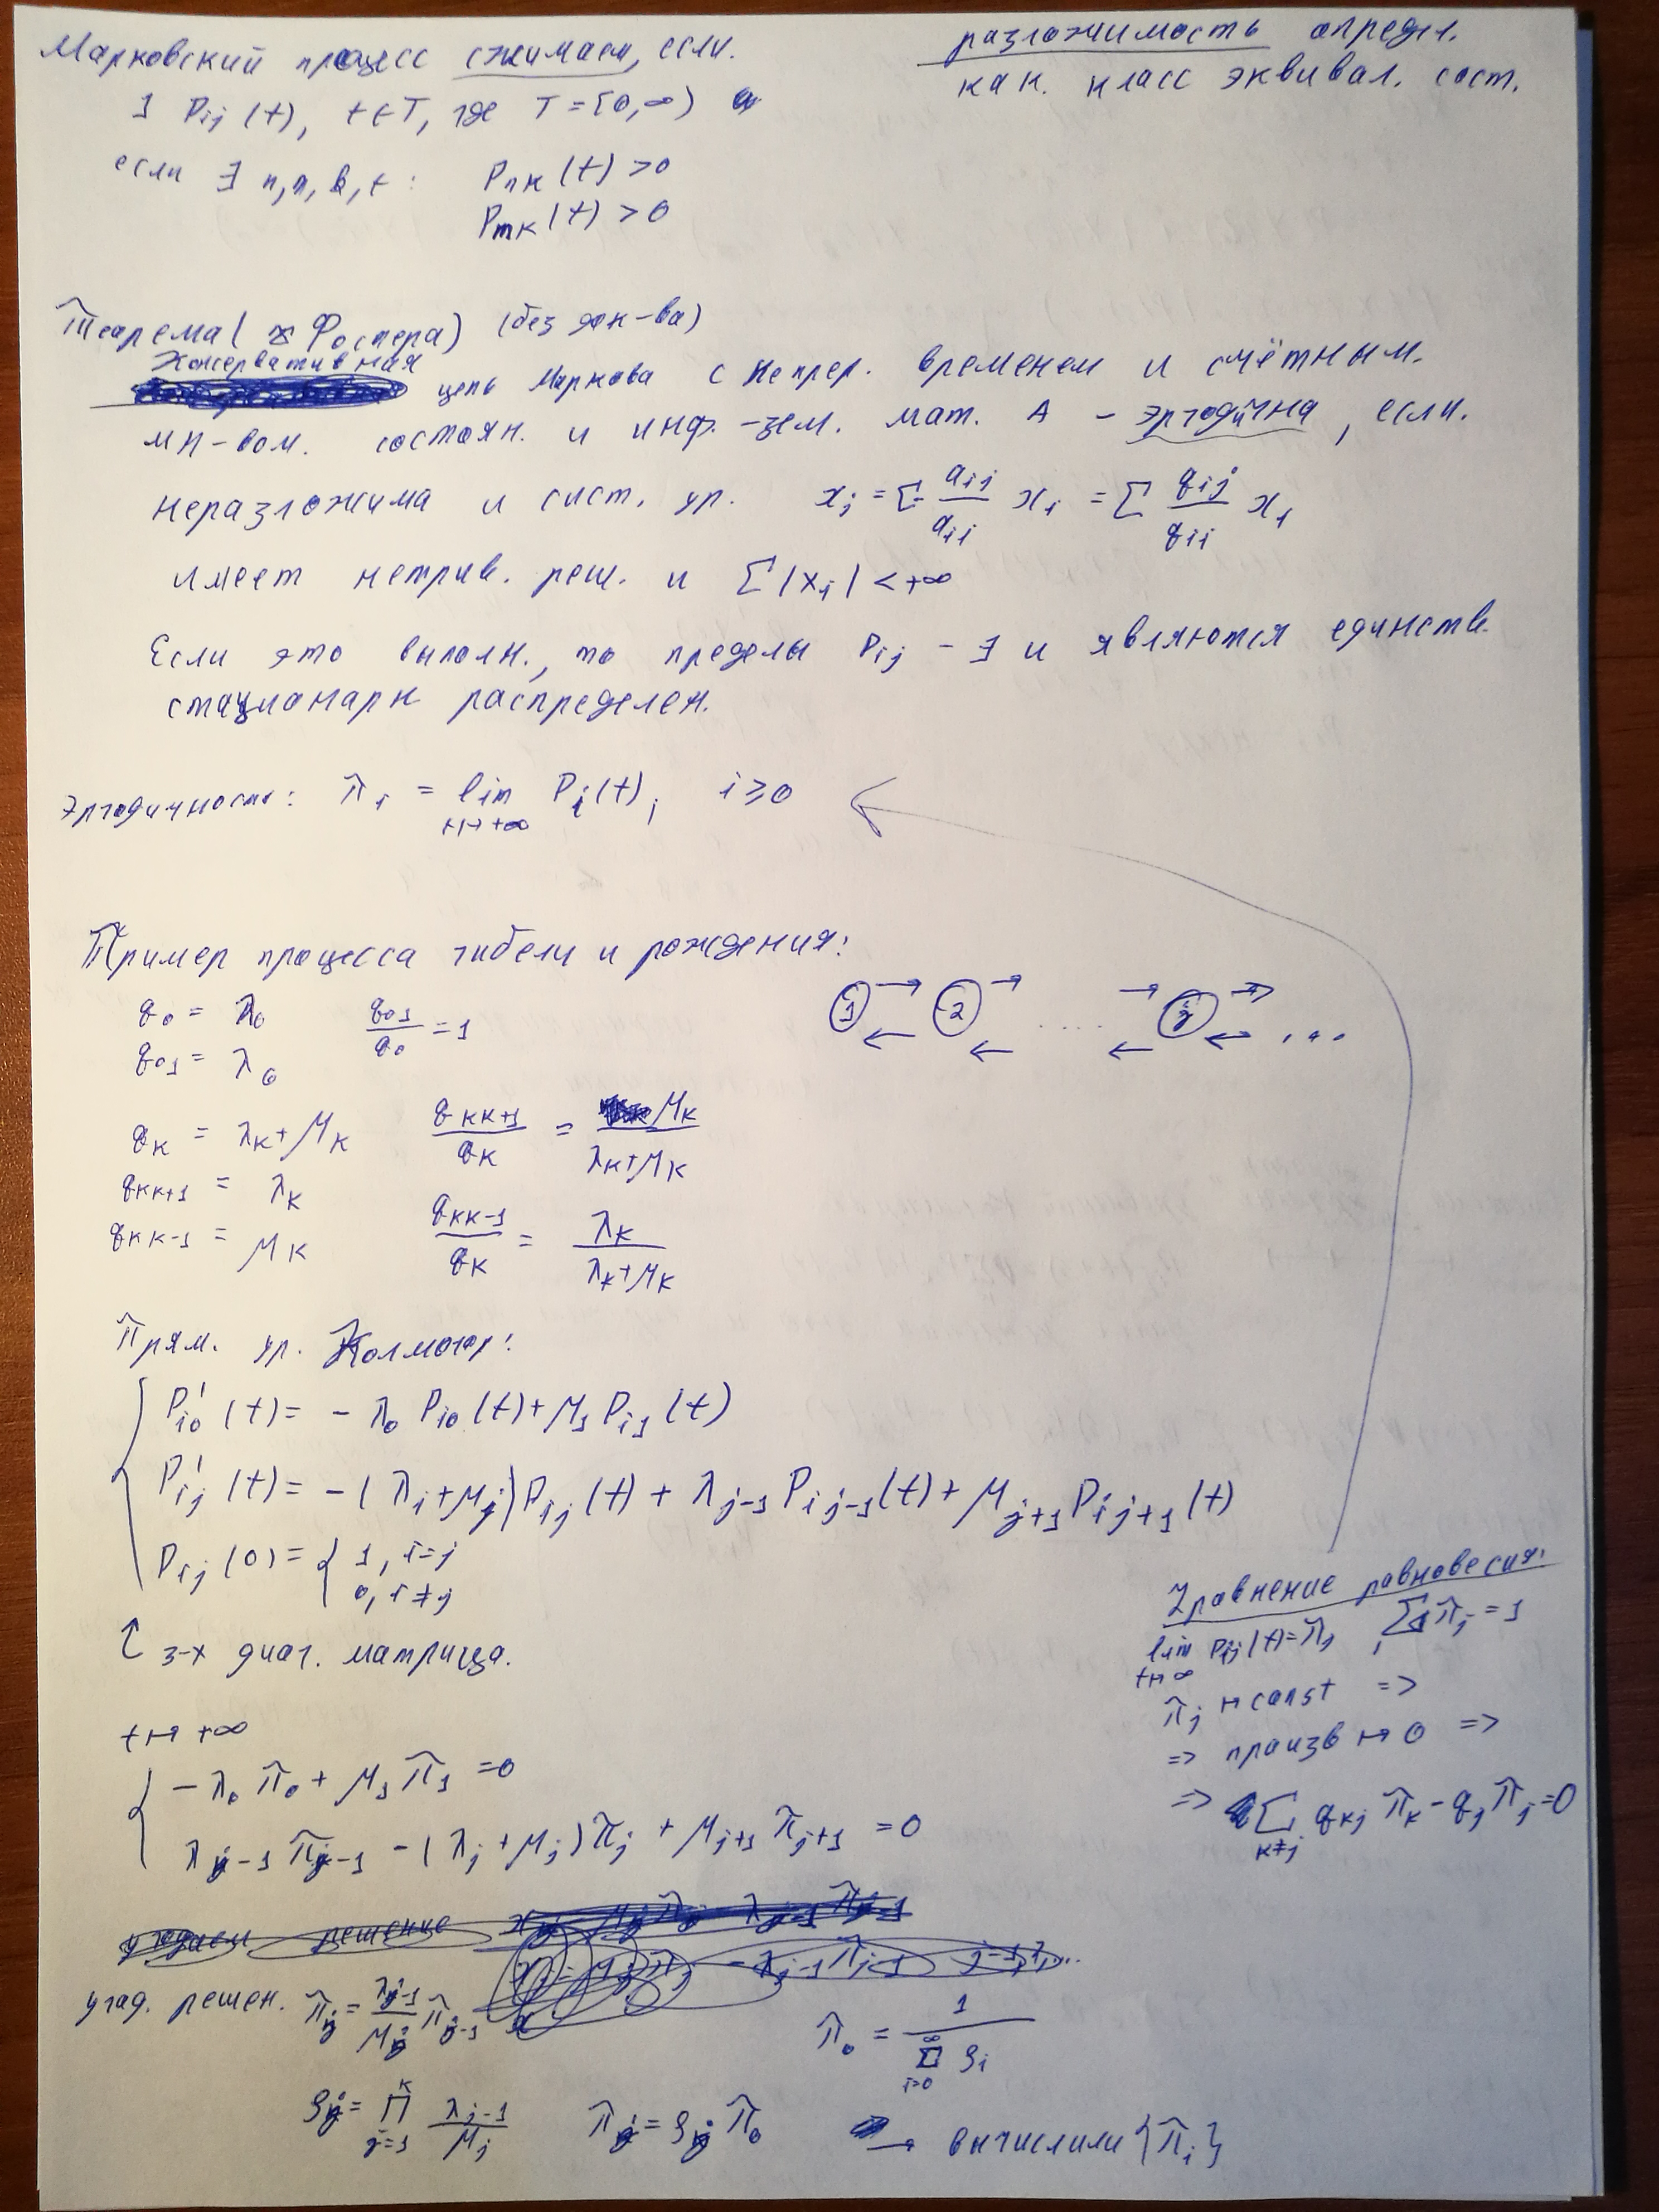 Марковский процесс сжимаем, если.
разложимость определ.
как. класс эквивал. сост.
∃ Pij (t), t∈T, где T = [0,∞)
если ∃ n, m, k, t : Pnк (t) >0
Pmк (t) > 0
Теорема ( Фостера) (без док-ва)
Консервативная цепь Маркова с непрер. временем и счётным.
мн-вом. состоян. и инф.-зем. мат. А – эргодична, если.
неразложима и сист. ур. xj = Σ- aij/aii xi = Σ qij/qii xi
имеет нетрив. реш. и Σ|xi| < +∞
Если это выполн., то пределы Pij – ∃ и являются единств.
стационарн распределен.
Эргодичность: πi = lim t↦+∞ Pi(t), i ≥ 0
Пример процесса гибели и рождения:
1 → ← 2 → ← .... → ← j → ← ...
q0 = λ0 q01/q0 = 1
q01 = λ0
qк = λк+μк qкк+1/qк = μк/λк+μк
qкк+1 = λк
qкк-1 = μк qкк-1/qк = λк/λк+μк
Прям. ур. Колмогор:
P'i0 (t) = - λ0 Pi0 (t) + μ1 Pi1 (t)
P'ij (t) = -(λj+μj)Pij (t) + λj-1 Pij-1(t) + μj+1 Pij+1 (t)
Pij (0) = { 1, i=j
0, i≠j
↑ 3-х диаг. матрица.
Уравнение равновесия:
lim t↦∞ Pij(t)=πj, Σπj = 1
πj ↦ const =>
=> произв ↦ 0 =>
=> Σ к≠j qкj πк - qj πj = 0
t↦ +∞
- λ0 π0 + μ1 π1 = 0
λj-1 πj-1 - (λj + μj) πj + μj+1 πj+1 = 0
угад. решен. πj = λj-1/μj πj-1
π0 = 1/Σ i=0 ∞ ρi
ρj = Π j=1 к λj-1/μj πj = ρj π0 → вычислили {πi}